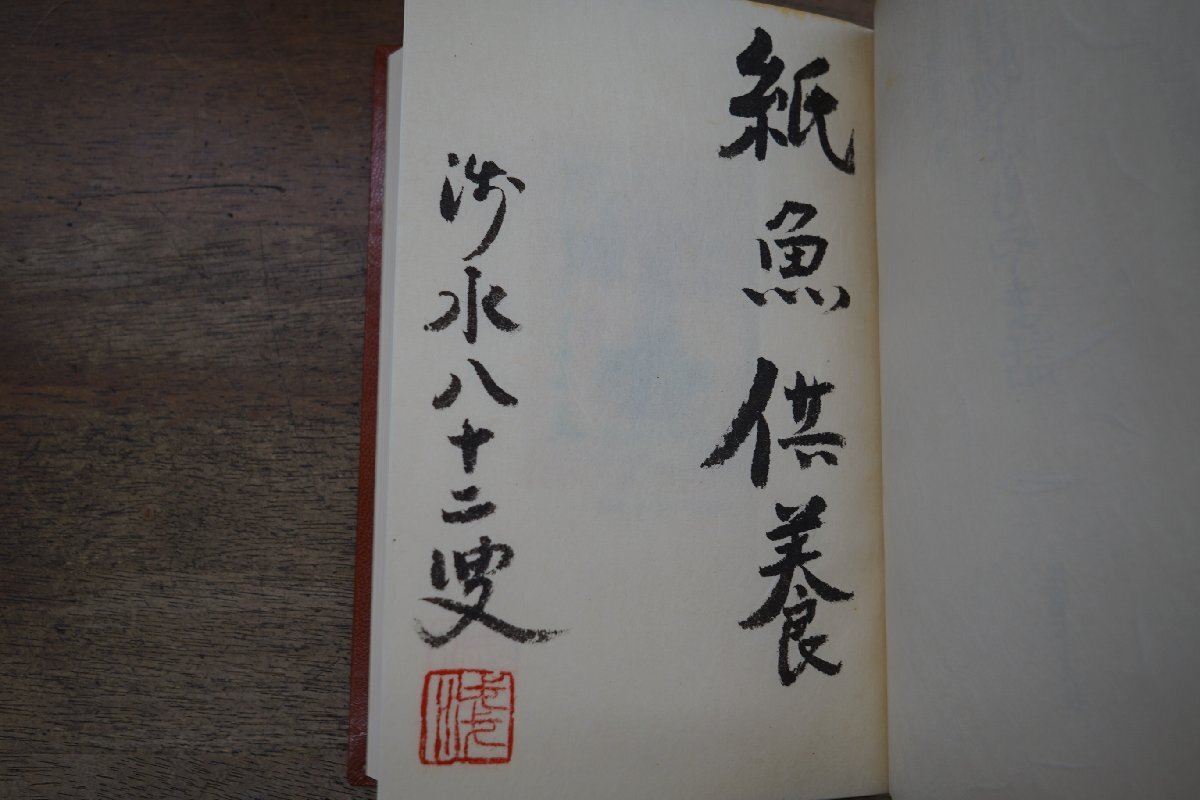 紙魚供養
渉水八十二叟